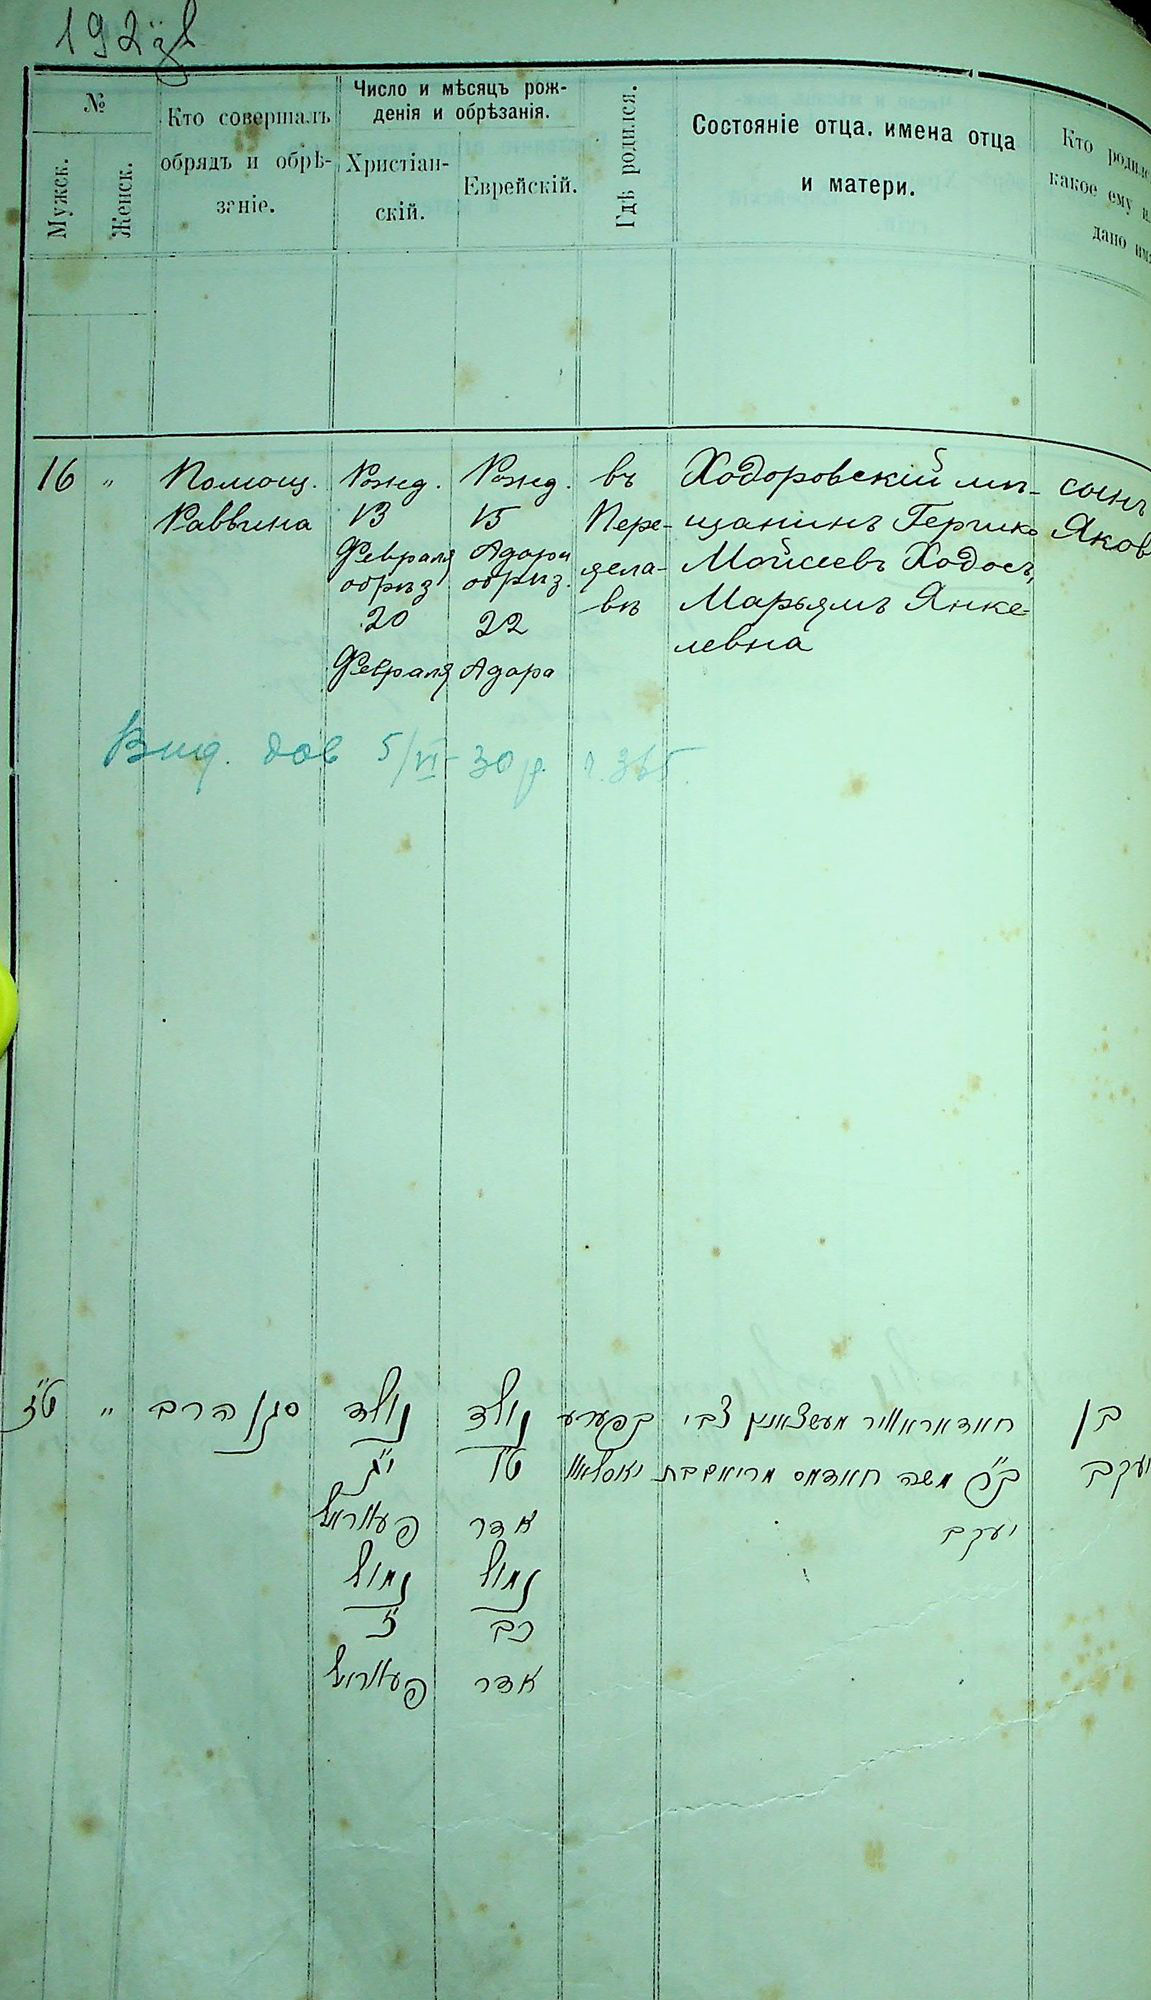 192
№
Мужск.
Женск.
Кто совершалъ
обрядъ и обрѣ-
заніе.
Число и мѣсяцъ рож-
денія и обрѣзанія.
Христіан-
скій.
Еврейскій.
Гдѣ родился.
Состояніе отца. имена отца
и матери.
Кто родилс
какое ему и
дано им
16 〃
Помощ.
Раввина
Рожд.
13
Февраля
обрѣз
20
Февраля
Рожд.
15
Адара
обрѣз.
22
Адара
въ
Пере-
ясла-
вѣ
Ходоровскій мѣ-
щанинъ Гершко
Мойсеевъ Ходосъ,
Марьямъ Янке-
левна
сынъ
Яков
Вид. дов 5/VI-30 р.
ט״ז 〃
סגן הרב
נולד
י״ג
פעווראל
נמול
כ׳
פעווראל
נולד
ט״ו
אדר
נמול
כב
אדר
צבי
משה
יעקב
בן
יעקב